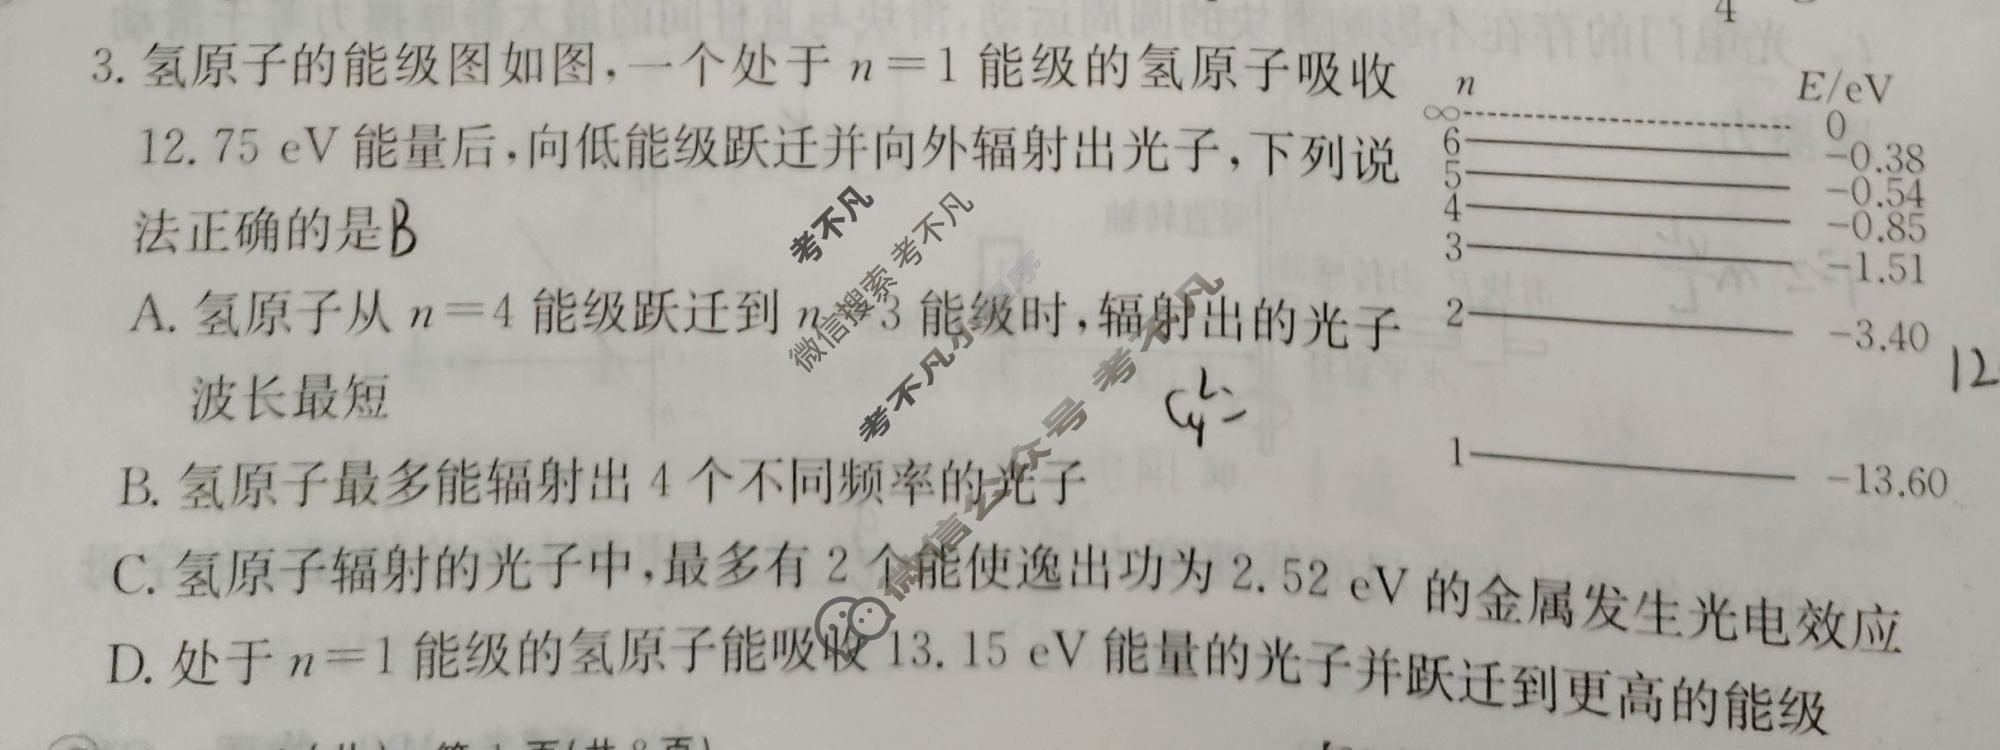 4
3. 氢原子的能级图如图,一个处于 n=1 能级的氢原子吸收
12.75 eV 能量后,向低能级跃迁并向外辐射出光子,下列说
法正确的是B
A. 氢原子从 n=4 能级跃迁到 n 3 能级时,辐射出的光子
波长最短
B. 氢原子最多能辐射出 4 个不同频率的光子
C. 氢原子辐射的光子中,最多有 2 个能使逸出功为 2.52 eV 的金属发生光电效应
D. 处于 n=1 能级的氢原子能吸收 13.15 eV 能量的光子并跃迁到更高的能级
n E/eV
∞ 0
6 -0.38
5 -0.54
4 -0.85
3 -1.51
2 -3.40
1 -13.60
12
考不凡
微信搜索 考不凡
微信公众号 考不凡